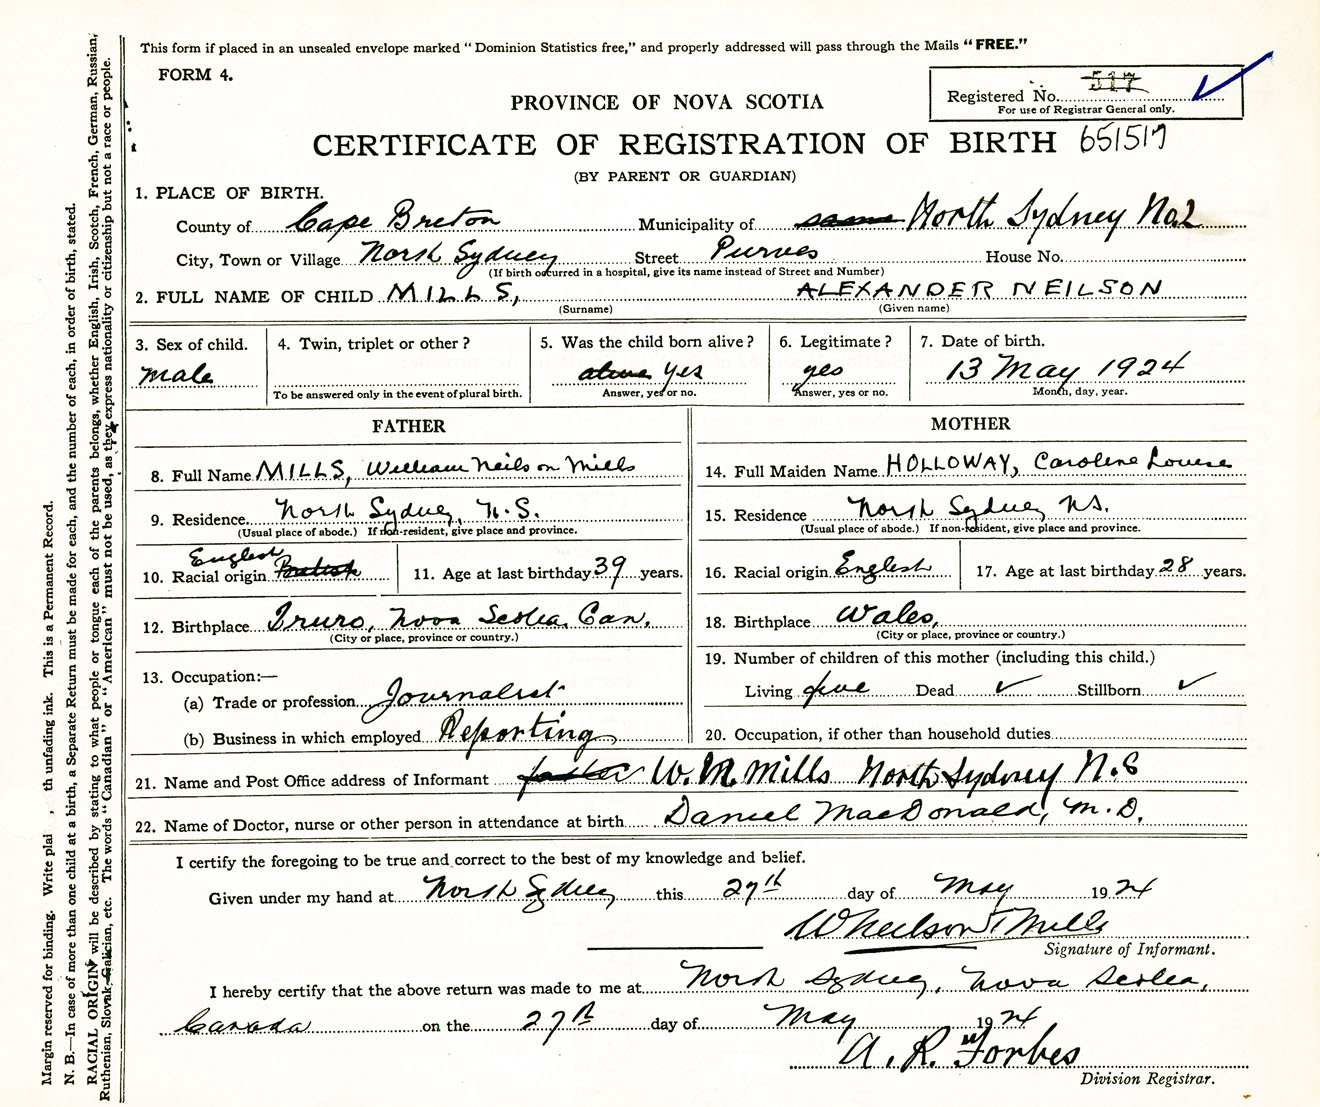 This form if placed in an unsealed envelope marked "Dominion Statistics free," and properly addressed will pass through the Mails "FREE."
FORM 4.
Registered No. 517
For use of Registrar General only.
PROVINCE OF NOVA SCOTIA
CERTIFICATE OF REGISTRATION OF BIRTH 651517
(BY PARENT OR GUARDIAN)
1. PLACE OF BIRTH.
County of Cape Breton Municipality of same North Sydney No.2
City, Town or Village North Sydney Street Purves House No.
(If birth occurred in a hospital, give its name instead of Street and Number)
2. FULL NAME OF CHILD MILLS, ALEXANDER NEILSON
(Surname) (Given name)
3. Sex of child. 4. Twin, triplet or other? 5. Was the child born alive? 6. Legitimate? 7. Date of birth.
male alive yes yes 13 May 1924
To be answered only in the event of plural birth. Answer, yes or no. Answer, yes or no. Month, day, year.
FATHER MOTHER
8. Full Name MILLS, William Neilson Mills
14. Full Maiden Name HOLLOWAY, Caroline Louise
9. Residence North Sydney, N.S.
(Usual place of abode.) If non-resident, give place and province.
15. Residence North Sydney NS.
(Usual place of abode.) If non-resident, give place and province.
English
10. Racial origin British 11. Age at last birthday 39 years.
16. Racial origin English 17. Age at last birthday 28 years.
12. Birthplace Truro, Nova Scotia, Can.
(City or place, province or country.)
18. Birthplace Wales,
(City or place, province or country.)
13. Occupation:—
(a) Trade or profession Journalist
(b) Business in which employed Reporting
19. Number of children of this mother (including this child.)
Living five Dead ✓ Stillborn ✓
20. Occupation, if other than household duties
21. Name and Post Office address of Informant father W. N. Mills North Sydney N.S
22. Name of Doctor, nurse or other person in attendance at birth Daniel MacDonald, M.D.
I certify the foregoing to be true and correct to the best of my knowledge and belief.
Given under my hand at North Sydney this 27th day of May 1924
W Neilson Mills
Signature of Informant.
I hereby certify that the above return was made to me at North Sydney, Nova Scotia,
Canada on the 27th day of May 1924
A. R. Forbes
Division Registrar.
Margin reserved for binding. Write plai , th unfading ink. This is a Permanent Record.
N. B.—In case of more than one child at a birth, a Separate Return must be made for each, and the number of each, in order of birth, stated.
RACIAL ORIGIN will be described by stating to what people or tongue each of the parents belongs, whether English, Irish, Scotch, French, German, Russian,
Ruthenian, Slovak, Galician, etc. The words "Canadian" or "American" must not be used, as they express nationality or citizenship but not a race or people.